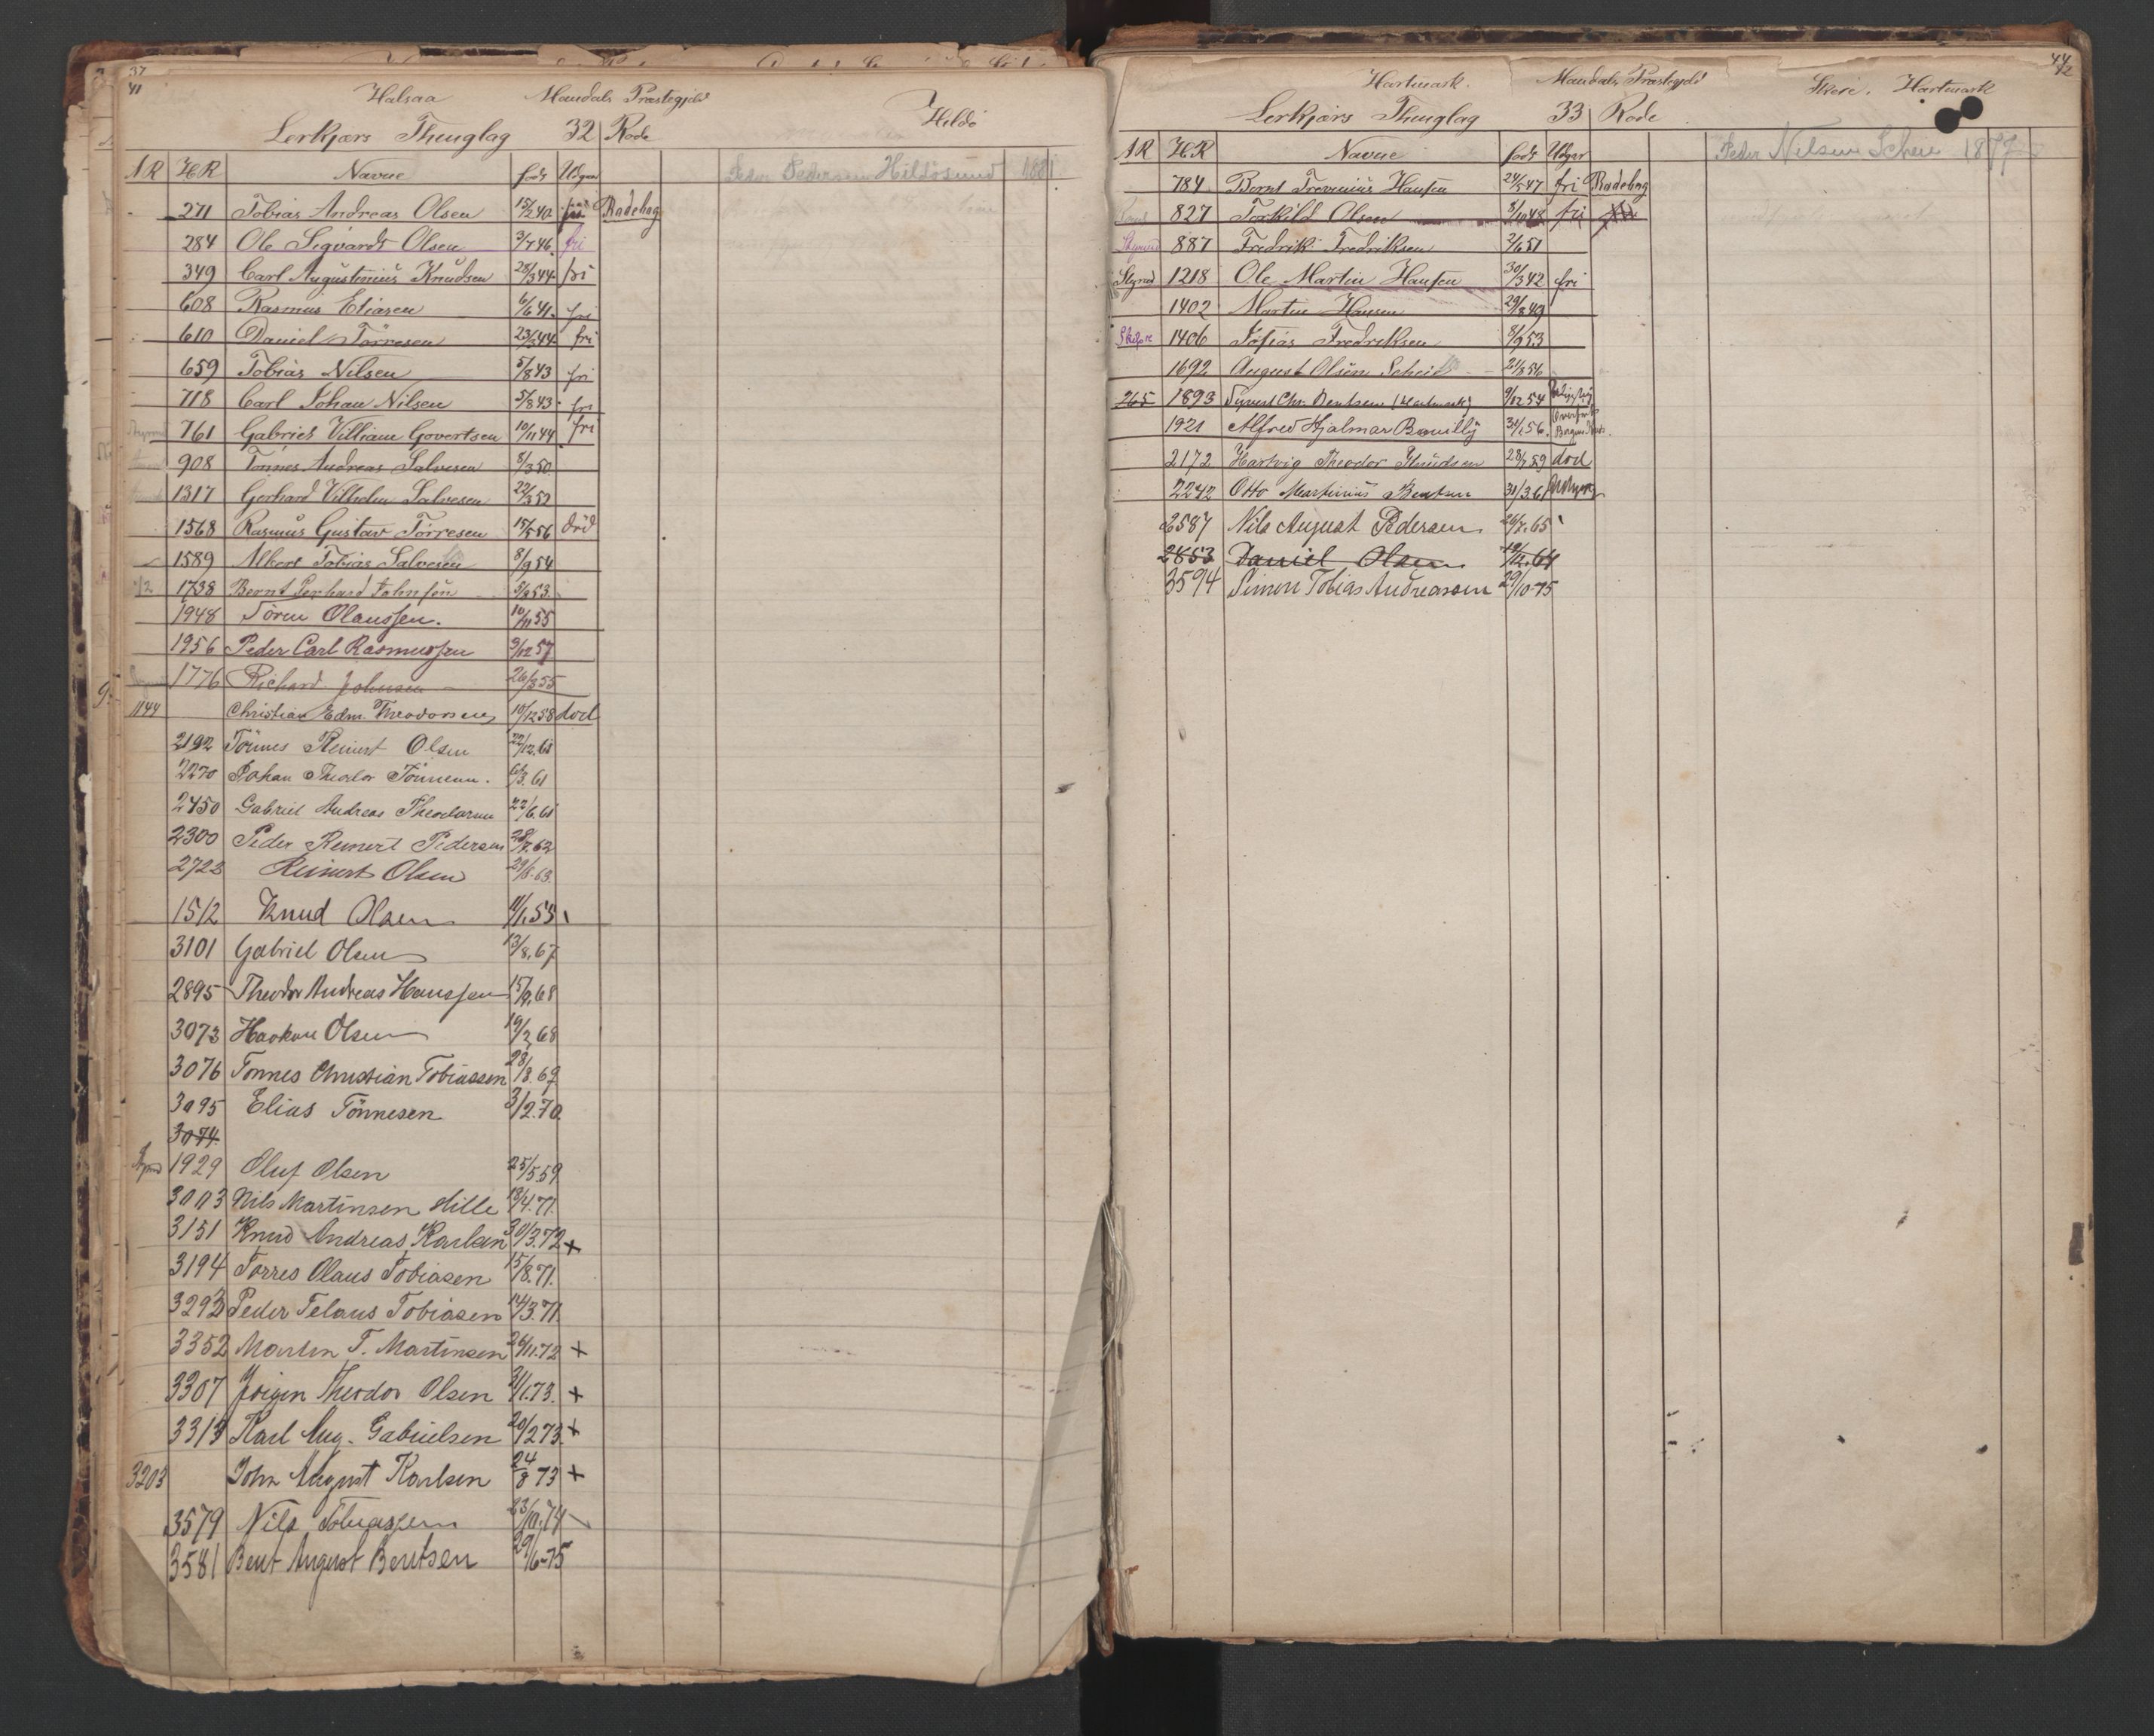 37
41
Halsaa Mandals Præstegjeld
Hildö
Lerkjærs Thinglag 32 Rode
AR HR Navne født Udgaa
Peder Pedersen Hildösund 1881
271 Tobias Andreas Olsen 15/2 40 fri Rodebog
284 Ole Sigvardt Olsen 3/7 46 fri
349 Carl Augustinius Knudsen 28/3 44 fri
608 Rasmus Eliasen 6/6 41 fri
610 Daniel Törresen 23/5 44 fri
659 Tobias Nilsen 5/8 43 fri
718 Carl Johan Nilsen 5/8 43 fri
761 Gabriel Villiam Govertsen 10/11 44 fri
908 Tönnes Andreas Salvesen 8/3 50
1317 Gerhard Vilhelm Salvesen 22/3 52
1568 Rasmus Gustav Törresen 15/5 56 död
1589 Albert Tobias Salvesen 8/9 54
1738 Bernt Gerhard Johnsen 5/8 53
1948 Sören Olaussen. 10/11 55
1956 Peder Carl Rasmussen 9/12 57
1776 Richard Johnsen 26/3 55
1144 Christian Edm. Theodorsen 10/12 58 död
2192 Tönnes Reinert Olsen 22/12.61
2270 Johan Theodor Tönnesen. 6/3.61
2450 Gabriel Andreas Theodorsen 22/6.61
2300 Peder Reinert Pedersen 28/7.62
2723 Reinert Olsen 29/8.63.
1512 Knud Olsen 11/1.55
3101 Gabriel Olsen 13/8.67
2895 Theodor Andreas Hanssen 15/9.68
3073 Haakon Olsen 19/2 68
3076 Tonnes Christian Tobiassen 28/8.69
3095 Elias Tönnesen 3/2.70.
3074
1929 Oluf Olsen 25/5.59
3003 Nils Martinsen Hille 18/4.71.
3151 Knud Andreas Karlsen 30/3.72 +
3194 Torres Olaus Tobiasen 15/8.71.
3293 Peder Telaus Tobiasen 14/3.71.
3352 Martin T. Martinsen 26/11.72 +
3307 Jörgen Theodor Olsen 21/1.73. +
3313 Karl Aug. Gabrielsen 20/2 73. +
3203 John August Karlsen 24/8 73 +
3579 Nils Tobiassen 23/10.74
3581 Bent August Bentsen 29/6-75
44
42
Hartmark. Mandals Præstegjeld
Skeie. Hartmark
Lerkjærs Thinglag 33 Rode
AR HR Navne født Udgaa
Peder Nilsen Scheie 1877
784 Bernt Trovinius Hansen 24/5 47 fri Rodebog
827 Torkild Olsen 8/10 48 fri
887 Fredrik Fredriksen 2/6 51
1218 Ole Martin Hansen 30/3 42 fri
1402 Martin Hansen 29/8 49
1406 Josias Fredriksen 8/9 53
1692 August Olsen Scheie 24/8 56
265 1893 Syvert Chr. Bentsen (Hartmark) 9/12 54
1921 Alfred Hjalmar 31/1 56.
2172 Hartvig Theodor Knudsen 28/7 59 död
2242 Otto Martinius Bentsen 31/3.61
2587 Nils August Pedersen 26/7.65
2853 Daniel Olsen 19/12.64
3594 Simon Tobias Andreassen 29/10-75